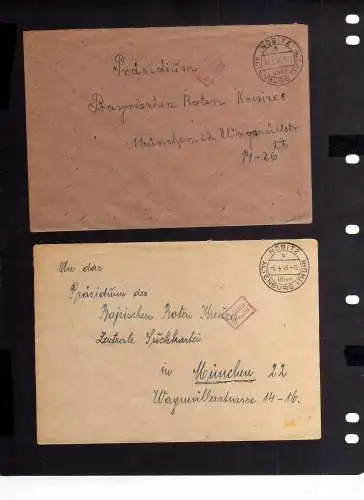 NOBITZ
a
über
Präsidium
Bayrischen Roten Kreuzes
München 22 Wagmüllerstr.
14-26
NOBITZ
a
-6.4.46.-
über
ALTENBURG (THÜR)
An das
Präsidium des
Bayrischen Roten Kreuzes
Zentrale Suchkartei
in München 22
Wagmüllerstrasse 14-16.